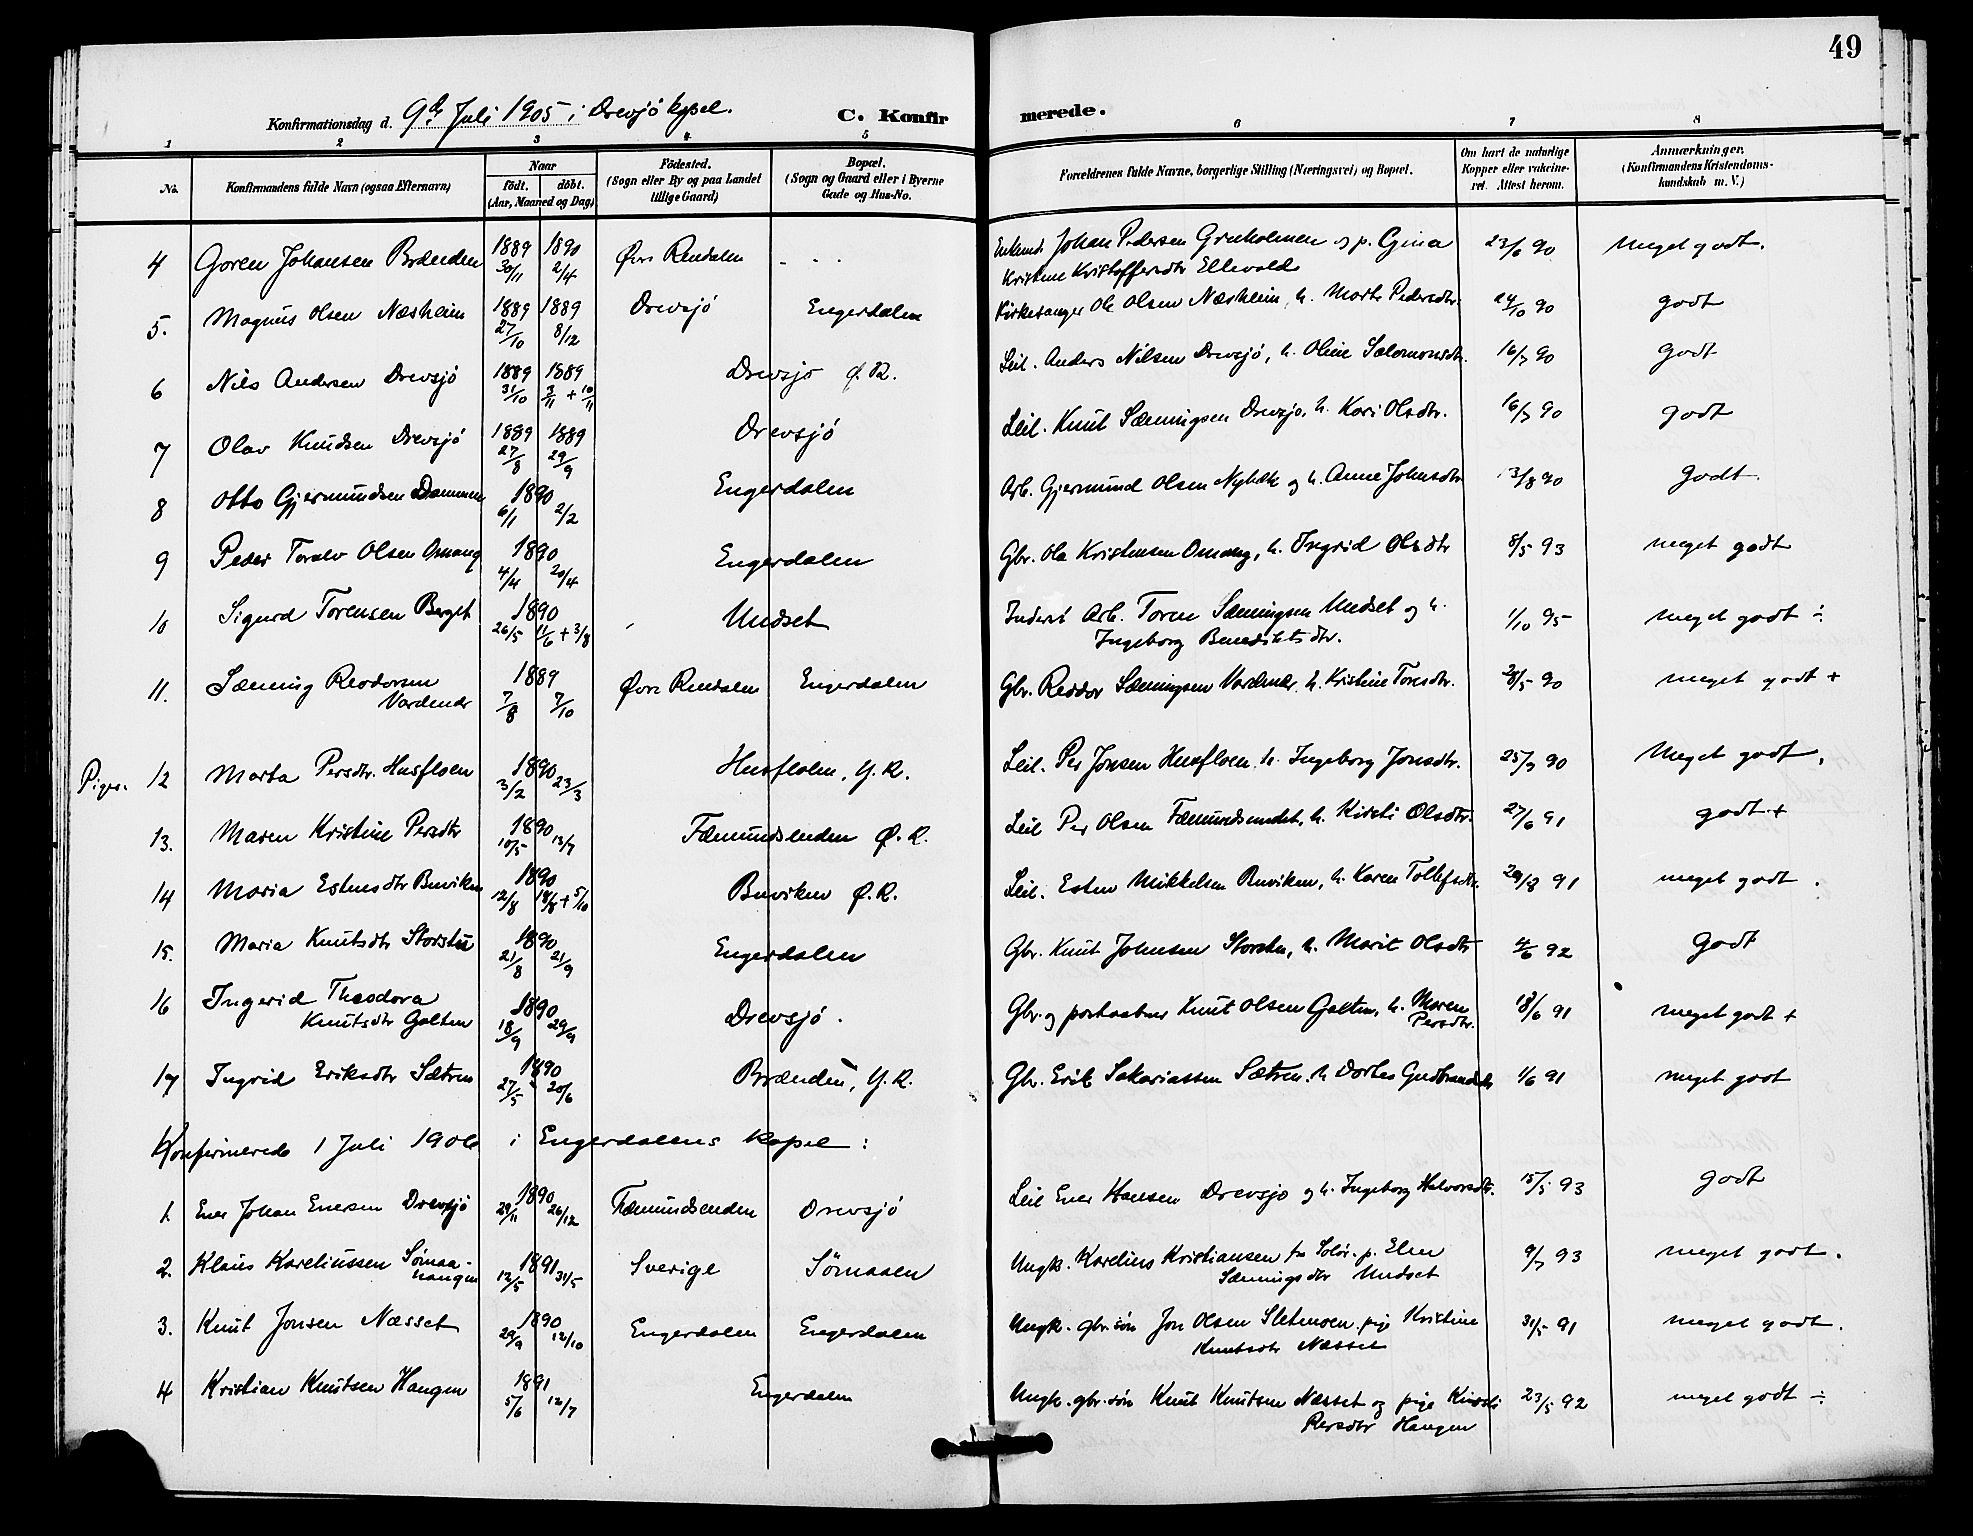 49
Konfirmationsdag d. 9de Juli 1905 i Drevsjö kapel. C. Konfirmerede.
1 2 3 4 5 6 7 8
No. Konfirmandens fulde Navn (ogsaa Efternavn) Naar födt. döbt. (Aar, Maaned og Dag) Födested. (Sogn eller By og paa Landet tillige Gaard) Bopæl. (Sogn og Gaard eller i Byerne Gade og Hus-No. Forældrenes fulde Navne, borgerlige Stilling (Næringsvei) og Bopæl. Om havt de naturlige Kopper eller vakcineret. Attest herom. Anmærkninger. (Konfirmandens Kristendomskundskab m. V.)
4 Goren Johansen Brænden 1889 30/11 1890 2/4 Øvre Rendalen - - - Johan Pedersen Grøholmen og p. Gina 23/6 90 Meget godt.
Kristine Kristoffersdtr Ellevold
5. Magnus Olsen Næsheim 1889 27/10 1889 8/12 Drevsjö Engerdalen Kirkesanger Ole Olsen Næsheim, h. Marte Pedersdtr. 24/10 90 godt
6 Nils Andersen Drevsjö 1889 31/10 1889 3/11 + 10/11 Drevsjö Ø. R. Leil. Anders Nilsen Drevsjö, h. Oline Salomonsdtr. 16/7 90 godt
7 Olav Knudsen Drevsjö 1889 27/8 1889 29/9 Drevsjö Leil. Knut Sæmingsen Drevsjö, h. Kari Olsdtr. 16/7 90 godt
8 Otto Gjermundsen Dammen 1890 6/1 2/2 Engerdalen Arb. Gjermund Olsen og h. Anne Johnsdtr 13/8 90 Godt.
9 Peder Toralv Olsen Omang 1890 4/4 20/4 Engerdalen Gbr. Ola Kristensen Omang, h. Ingrid Olsdtr 8/5 93 meget godt
10 Sigurd Torensen Berget 1890 26/5 11/6 + 3/8 Undset Inderst Arb. Toren Sæmingsen Undset og h. 1/10 95 meget godt ÷
Ingeborg Benediktsdtr.
11. Sæming Reodorsen 1889 7/8 7/10 Øvre Rendalen Engerdalen Gbr. Reodor Sæmingsen Vardenær, h. Kristine Torsdtr. 28/5 90 meget godt +
Vardenær
Piger. 12 Marta Persdtr. Husfloen 1890 3/2 23/3 Husfloen, Y. R. Leil. Per Jonsen Husfloen h. Ingeborg Jonsdtr. 25/7 90 Meget godt.
13. Maren Kristine Persdtr 1890 10/5 13/7 Fæmundsenden Ø. R. Leil Per Olsen Fæmundsundet, h. Kirsti Olsdtr. 27/6 91 godt +
14 Maria Estensdtr Buviken 1890 12/8 18/8 + 5/10 Buviken Ø. R. Leil. Esten Mikkelsen Buviken, h. Karen Tollefsdtr. 29/8 91 meget godt.
15. Maria Knutsdtr Storstu 1890 21/8 21/9 Engerdalen Gbr. Knut Johnsen Storstu, h. Marit Olsdtr 4/6 92 Godt
16 Ingerid Theodora 1890 18/9 29/9 Drevsjö. Gbr. og postaabner Knut Olsen Galten, h. Maren 18/6 91 meget godt +
Knutsdtr Galten Persdtr.
17 Ingrid Eriksdtr Sætren 1890 27/5 20/6 Brænden, Y. R. Gbr. Erik Sakariassen Sætren. h Dortea Gudbrandsdtr 1/6 91 meget godt
Konfirmerede 1 Juli 1906 i Engerdalens kapel:
1. Ener Johan Enersen Drevsjö 1890 29/11 26/12 Fæmundsenden Drevsjö Leil Ener Hansen Drevsjö og h. Ingeborg Halvorsdtr. 15/5 93 godt
2. Klaus Kareliussen Sømaa- 1891 12/5 31/5 Sverige Sömaaen Ungk. Karelius Kristiansen fra Solör. p. Elen 9/7 93 meget godt.
haugen Sæmingsdtr Undset
3. Knut Jonsen Næsset 1890 29/9 12/10 Engerdalen Engerdalen Ungk. gbr.søn Jon Olsen Sletmoen. pige Kristine 31/5 91 meget godt.
Knutsdtr Næsset
4 Kristian Knutsen Haugen 1891 5/6 12/7 Engerdalen Ungk. gbr. søn Knut Knutsen Næsset og pige Kirsti 23/5 92 meget godt ÷
Persdtr Haugen